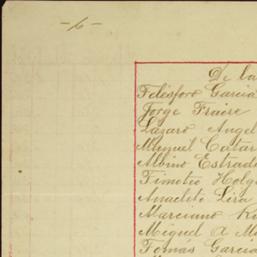 -6-
De la
Telésforo García
Jorge Fraire
Lázaro Angel
Manuel
Albino Estrad
Timoteo Holg
Anacleto Lira
Marciano
Miguel A
Tomás García